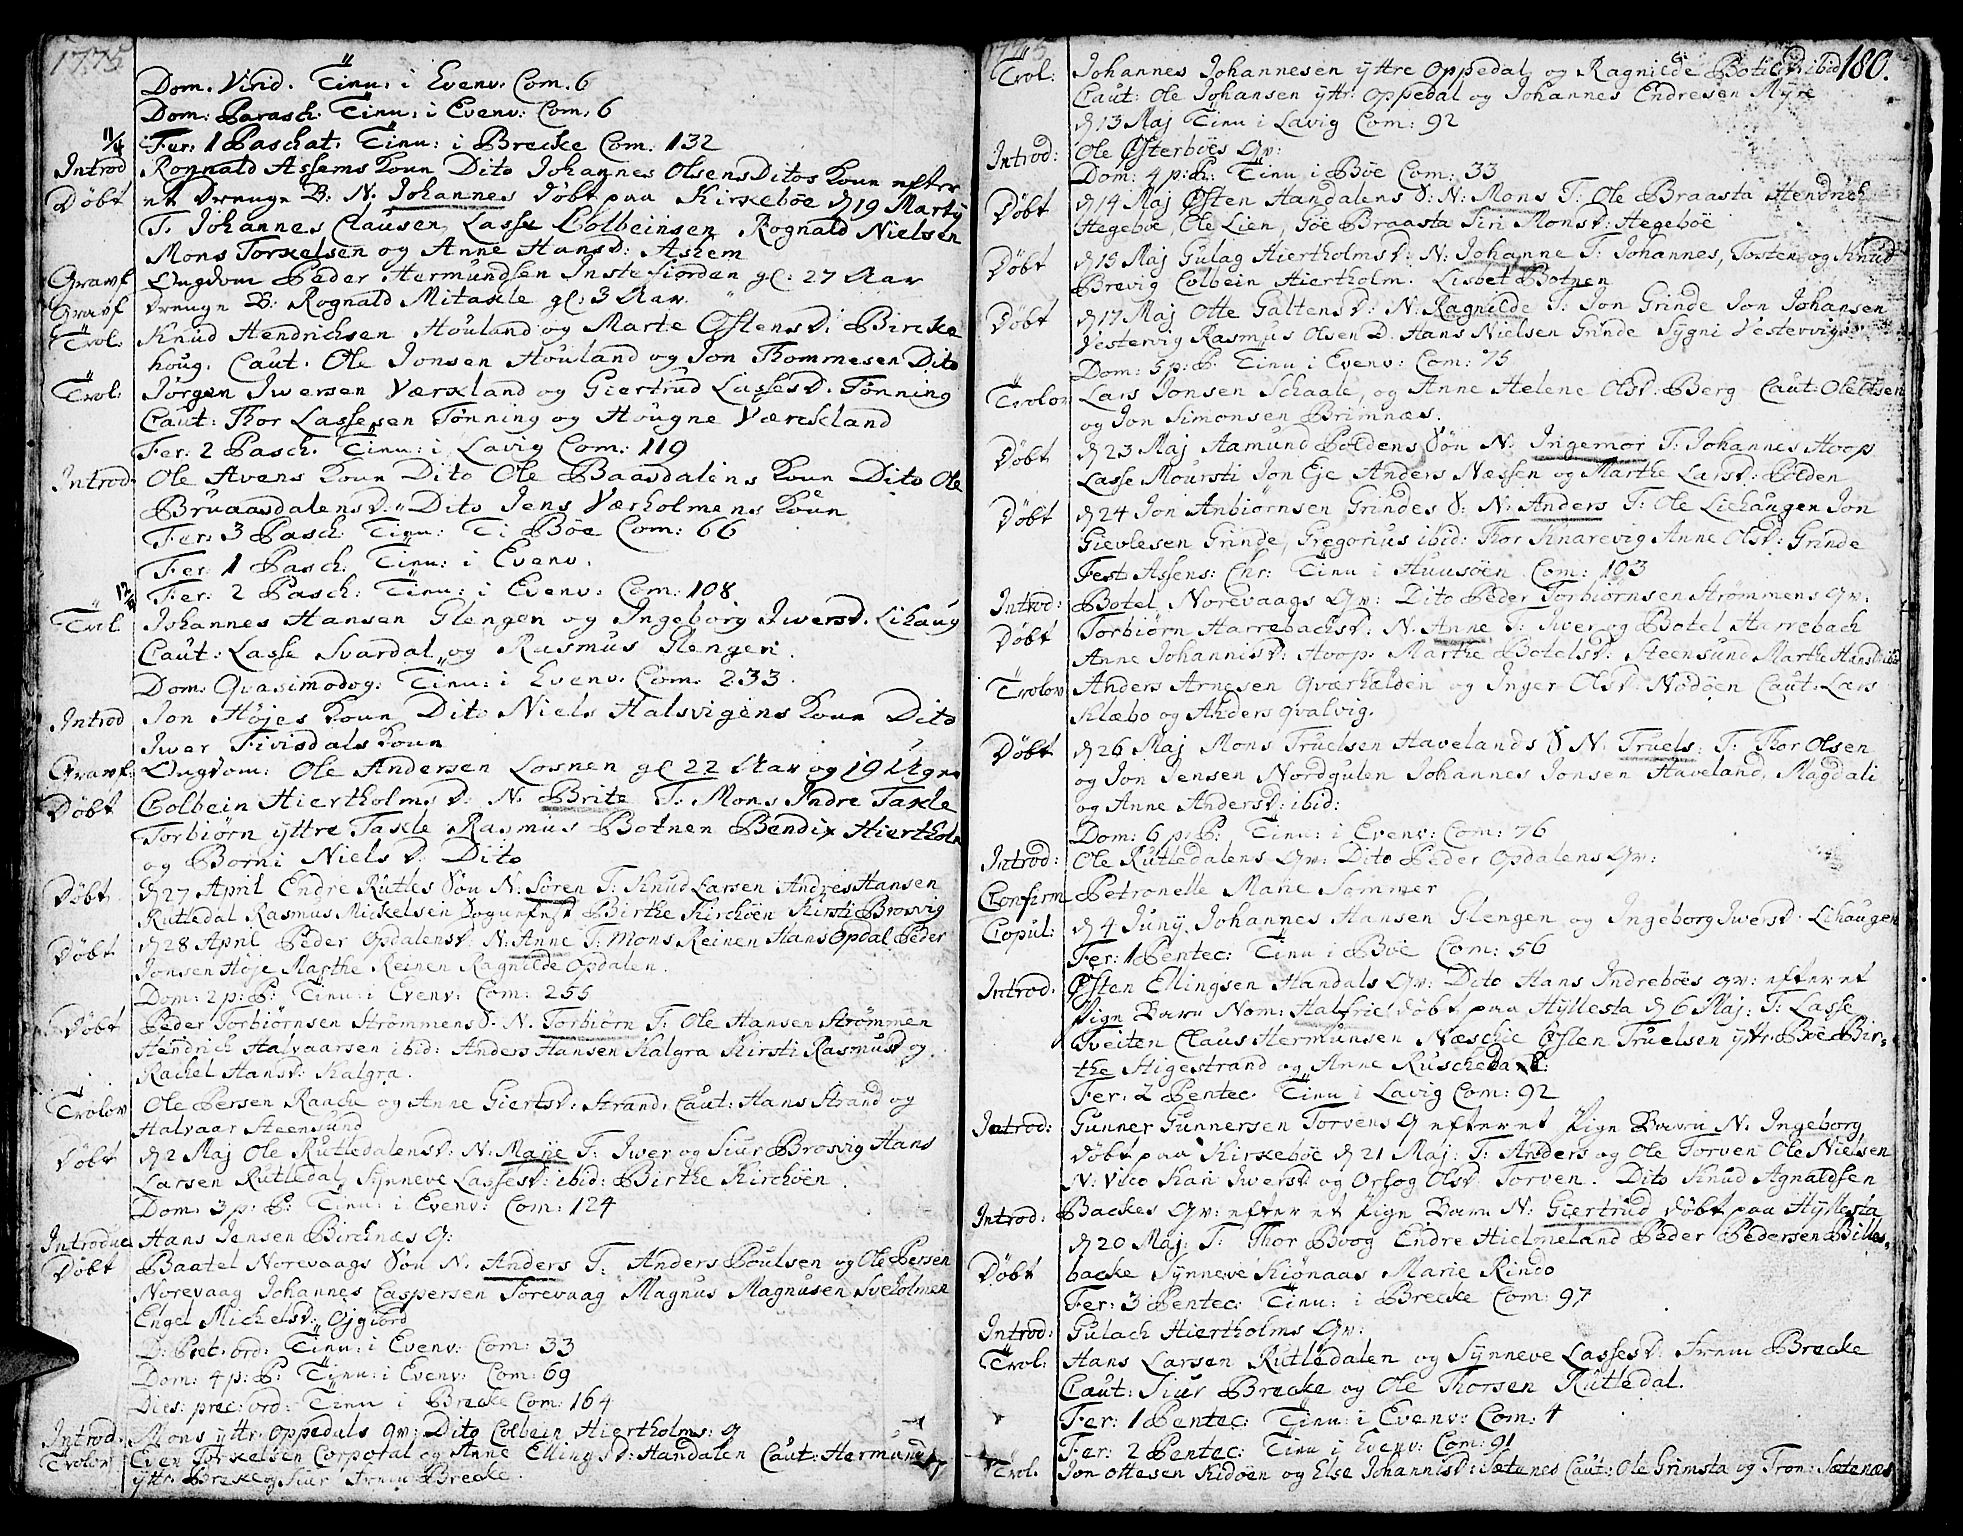 1775
Dom. Virid. Tinu: i Evenv: Com. 6
Dom: Parasch: Tinu: i Evenv: Com: 6
11/4 Fer: 1 Paschat: Tinu: i Brecke Com: 132
Introd Rognald Assems Koun Dito Johannes Olsens Ditos Koun efter
Døbt et Drenge B: N: Johannes døbt paa Kirkebøe d 19 Martij
T. Johannes Clausen, Lasse Colbeinsen Rognald Nielsen
Mons Torkelsen og Anne Hansd: Askem
Gravf Ungdom Peder Hermundsen Instefiorden gl: 27 Aar
Gravf Drenge B: Rognald Mitakle gl: 3 Aar.
Trol: Knud Hendrichsen Houland og Marte Ostensd: Bircke
houg. Caut. Ole Jonsen Houland og Jon Thommesen Dito
Trol: Jørgen Iwersen Værkland og Giertrud Lassesd. Tønning
Caut: Thor Lassesen Tønning og Hougne Værckland
Fer: 2 Pasch. Tinu: i Lavig Com: 119
Introd: Ole Avens Koun Dito Ole Baasdalens Koun Dito Ole
Bruaasdalensd: Dito Jens Værholmens Koun
Fer: 3 Pasch: Tinu: T: Bøe Com: 66
Fer: 1 Pasch: Tinu: i Evenv.
Fer: 2 Pasch: Tinu: i Evenv: Com: 108
Trol Johannes Hansen Glengen og Ingeborg Iwersd. Lihaug
Caut: Lasse Svardal og Rasmus Glengen.
Dom: Quasimodog: Tinu: i Evenv. Com. 233.
Introd Jon Højes Koun Dito Niels Halsvigens Koun Dito
Iwer Fivisdals Koun
Gravf: Ungdom: Ole Andersen Losnen gl 22 Aar og 19 Ugr
Døbt Colbein Hiertholms D: N: Brite T: Mons Indre Takle
Torbiørn yttre Takle Rasmus Botnen Bendix Hierthol
og Borni Niels D: Dito
Døbt d 27 April Endre Rutles Søn N: Søren T: Knud Larsen Andres Hansen
Rutledal Rasmus Mickelsen Sognfest Birthe Kirchøen Kirsti Brosvig
Døbt d 28 April Peder Opdalensd: N: Anne T: Mons Reinen Hans Opdal Peder
Jonsen Høje Marthe Reinen Ragnilde Opdalen.
Dom: 2 p: P: Tinu: i Evenv: Com: 255
Døbt Peder Torbiørnsen Strømmens S. N. Torbiørn T: Ole Hansen Strømmen
Hendrich Halvaarsen ibid: Anders Hansen Kalgra Kirsti Rasmusd og
Rachel Hansd: Kalgra.
Trolov Ole Persen Raache og Anne Giertsd: Strand: Caut: Hans Strand og
Halvaar Steensund
Døbt d 2 Maj Ole Rutledalensd: N: Marie T: Iwer og Siur Brosvig Hans
Larsen Rutledal, Synneve Lassesd: ibid: Birthe Kirchøen.
Dom: 3 p: P: Tinu: i Evenv: Com: 124
Introduc Hans Jensen Birchnæs Q:
Døbt Baatel Norevaags Søn N. Anders T: Anders Poulsen og Ole Persen
Norevaag Johannes Caspersen Sorevaag Magnus Magnusen Sveholmen
Engel Michelsd: Ojgiord
D: Prec: ord: Tinu: i Evenv: Com: 33
Dom: 4 p: P: Tinu: i Evenv: Com: 69
Dies: prec: ord: Tinu i Brecke Com: 164
Introd. Mons yttr: Oppedals Qv: Dito Colbein Hiertholms: Q
Trolov Even Torkelsen Corpotal og Anne Ellingsd: Handalen Caut: Hermund
yttr: Brecke og Siur Frem Brecke.
180.
Trol: Johannes Johannesen yttre Oppedal og Ragnilde Botelsd ibid
Caut: Ole Johansen yttr: Oppedal og Johannes Endresen Myre
d 13 Maj Tinu i Lavig Com: 92
Introd: Ole Østerboes Qv:
Dom: 4 p: P: Tinu i Bøe Com: 33
Døbt d 14 Maj Østen Handalens S: N: Mons T: Ole Braasta Hendrich
Hegebøe, Ole Lien, Goe Braasta Siri Monsd: Hegebøe
Døbt d 15 Maj Gulag Hiertholmsd: N: Johanne T: Johannes, Torsten og Knud
Brevig Colbein Hiertholm. Lisbet Botnen
Døbt d 17 Maj Otte Galtensd: N. Ragnilde T: Jon Grinde Jon Johansen
Vestervig Rasmus Olsen D. Hans Nielsen Grinde Sygni Vestervig
Dom: 5 p: P: Tinu i Evenv: Com: 75
Trolov Lars Jonsen Schaale, og Anne Helene Olsd. Berg Caut: Ole Olsen
og Jon Simonsen Brimnæs.
Døbt d 23 Maj Aamund Poldens Søn N: Ingemor T: Johannes Hoop
Lasse Moursti Jon Eje Anders Næssen og Marthe Larsd: Polden
Døbt d 24 Jon Anbiørnsen Grindes S: N: Anders T: Ole Liehaugen Jon
Gievlesen Grinde, Gregorius ibid: Thor Knarevig Anne Olsd: Grinde
Fest Assens: Chr: Tinu i Huusøen Com: 103
Introd: Botel Norevaags Qv: Dito Peder Torbiørnsen Strømmens Qv:
Døbt Torbiørn Harrebachsd: N: Anne T: Iwer og Botel Harrebach
Anne Johannisd: Hoop: Marthe Botelsd: Steensund Marthe Hansd: ibid
Trolov Anders Arnesen Qværhælden og Inger Olsd: Nodøen Caut: Lars
Klæbo og Anders qvalvig.
Døbt d 26 Maj Mons Truelsen Havelands S N: Truels: T: Thor Olsen
og Jon Jensen Nordgulen Johannes Jonsen Haveland, Magdali
og Anne Andersd: ibid:
Dom: 6 p: P: Tinu: i Evenv: Com: 76
Introd: Ole Rutledalens Qv: Dito Peder Opdalens Qv:
Confirm Petronelle Marie Sommer
Copul: d 4 Junij Johannes Hansen Glengen og Ingeborg Iwersd: Lihaugen
Fer: 1 Pentec: Tinu i Bøe Com: 56
Introd: Østen Ellingsen Handals Qv: Dito Hans Indrebøes qv: efter et
Pige Barn Nom: Halfrie døbt paa Hyllesta d 6 Maj: T: Lasse
Sveiten Claus Hermunsen Næsckie Østen Truelsen yttr: Bøe Bir-
the Higestrand og Anne Ruschedal:
Fer: 2 Pentec. Tinu i Lavig Com: 92
Introd: Gunner Gunnersen Torvens Q efter et Pige Barn N. Ingeborg
døbt paa Kirkebøe d 21 Maj: T: Anders og Ole Torven Ole Nielsen
N: Visto Kari Iwersd og Orlog Olsd Torven. Dito Knud Agnaldsen
Introd: Backes Qv: efter et Pige Barn N: Giertrud døbt paa Hyllesta
d 20 Maj: T: Thor Boog Endre Hielmeland Peder Pedersen Billes-
Døbt backe Synneve Kiønaas Marie Rindo
Fer: 3 Pentec: Tinu: i Brecke Com: 97
Introd: Gulach Hiertholms Qv:
Trol: Hans Larsen Rutledalen og Synneve Lassesd: Frem Brecke
Caut: Siur Brecke og Ole Thorsen Rutledal.
Fer: 1 Pentec: Tinu: i Evenv: Com: 4
Fer: 2 Pentec: Tinu i Evenv: Com: 91
Trol. Jon Ottesen Kidøen og Else Johannisd: Sætenes Caut: Ole Grimsta og Tron: Sætenæs